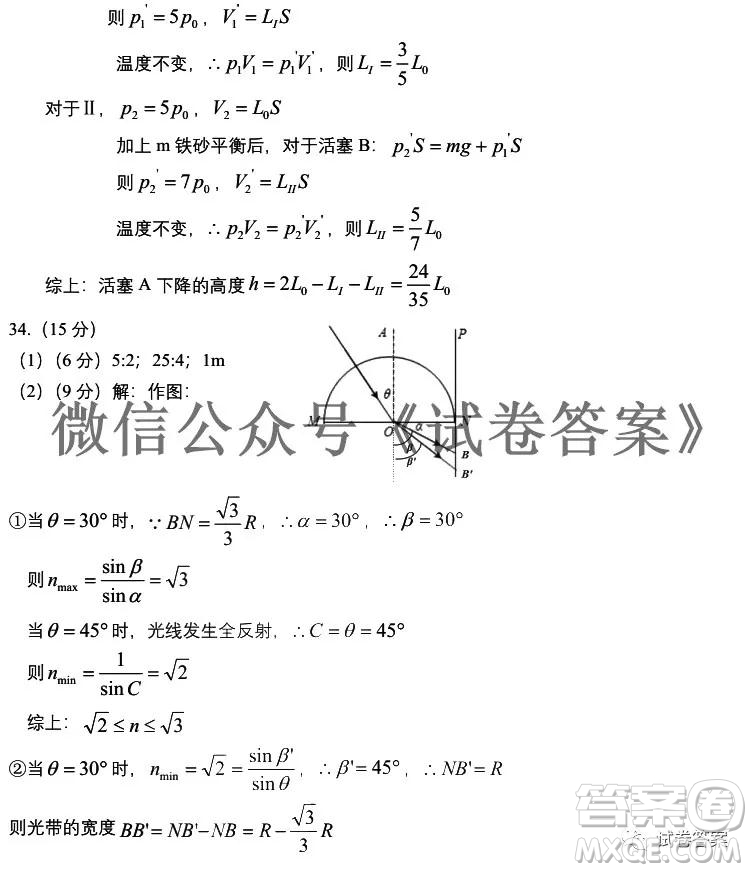 则 p₁' = 5p₀，V₁' = L_I S
温度不变，∴ p₁V₁ = p₁'V₁'，则 L_I = 3/5 L₀
对于Ⅱ，p₂ = 5p₀，V₂ = L₀S
加上 m 铁砂平衡后，对于活塞 B：p₂'S = mg + p₁'S
则 p₂' = 7p₀，V₂' = L_II S
温度不变，∴ p₂V₂ = p₂'V₂'，则 L_II = 5/7 L₀
综上：活塞 A 下降的高度 h = 2L₀ − L_I − L_II = 24/35 L₀
34.（15 分）
（1）（6 分）5:2；25:4；1m
（2）（9 分）解：作图：
A P
θ
M O α N
β B
β' B'
微信公众号《试卷答案》
①当 θ = 30° 时，∵ BN = √3/3 R，∴ α = 30°，∴ β = 30°
则 n_max = sin β / sin α = √3
当 θ = 45° 时，光线发生全反射，∴ C = θ = 45°
则 n_min = 1 / sin C = √2
综上：√2 ≤ n ≤ √3
②当 θ = 30° 时，n_min = √2 = sin β' / sin θ，∴ β' = 45°，∴ NB' = R
则光带的宽度 BB' = NB' − NB = R − √3/3 R
答案卷
试卷答案
MXQE.COM